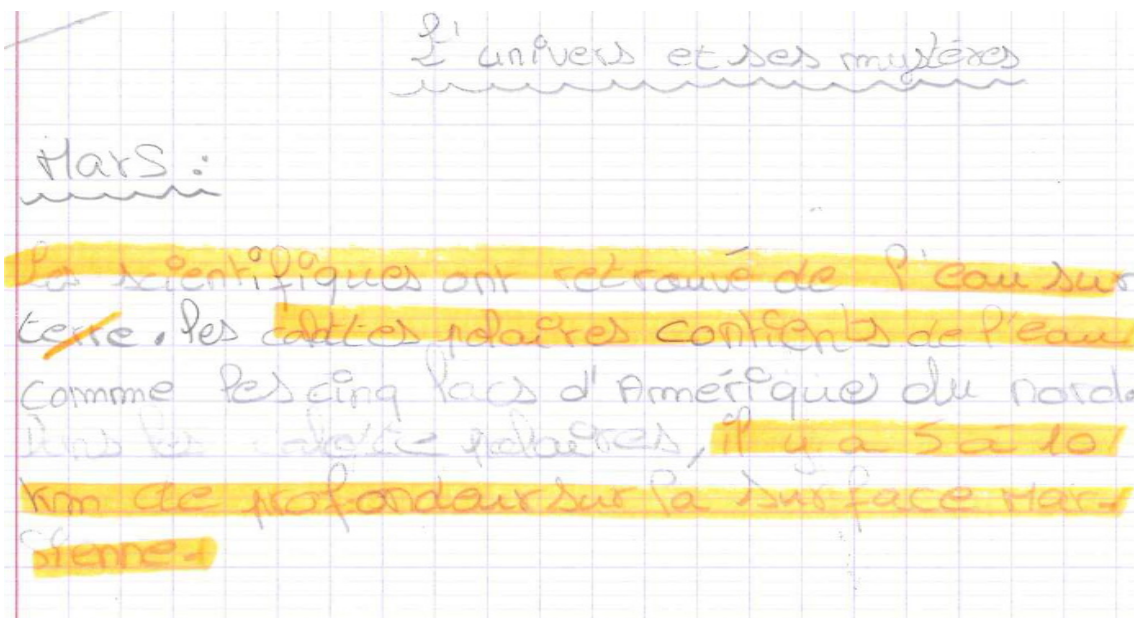 L'univers et ses mystéres
Mars :
les scientifiques ont retrouvé de l'eau sur
terre. les calottes polaires contients de l'eau
comme les cinq lacs d'Amérique du nord.
Dans les polaires, il y a 5 à 10
km de profondeur sur la surface Mar-
sienne.